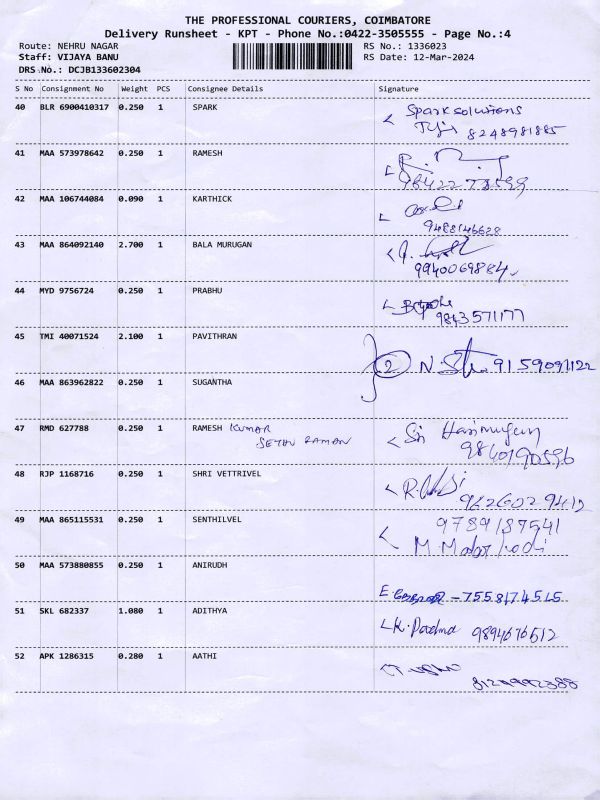 THE PROFESSIONAL COURIERS, COIMBATORE
Delivery Runsheet - KPT - Phone No.:0422-3505555 - Page No.:4
Route: NEHRU NAGAR RS No.: 1336023
Staff: VIJAYA BANU RS Date: 12-Mar-2024
DRS No.: DCJB133602304
S No Consignment No Weight PCS Consignee Details Signature
40 BLR 6900410317 0.250 1 SPARK Spark solutions
8248981885
41 MAA 573978642 0.250 1 RAMESH
42 MAA 106744084 0.090 1 KARTHICK
9488146628
43 MAA 864092140 2.700 1 BALA MURUGAN
9940069884
44 MYD 9756724 0.250 1 PRABHU
9843571177
45 TMI 40071524 2.100 1 PAVITHRAN
2 9159091122
46 MAA 863962822 0.250 1 SUGANTHA
47 RMD 627788 0.250 1 RAMESH KUMAR
SETHU RAMAN
9840190596
48 RJP 1168716 0.250 1 SHRI VETTRIVEL
9626029412
49 MAA 865115531 0.250 1 SENTHILVEL 9789187541
50 MAA 573880855 0.250 1 ANIRUDH
7558174515
51 SKL 682337 1.080 1 ADITHYA K. Padma 9894676512
52 APK 1286315 0.280 1 AATHI